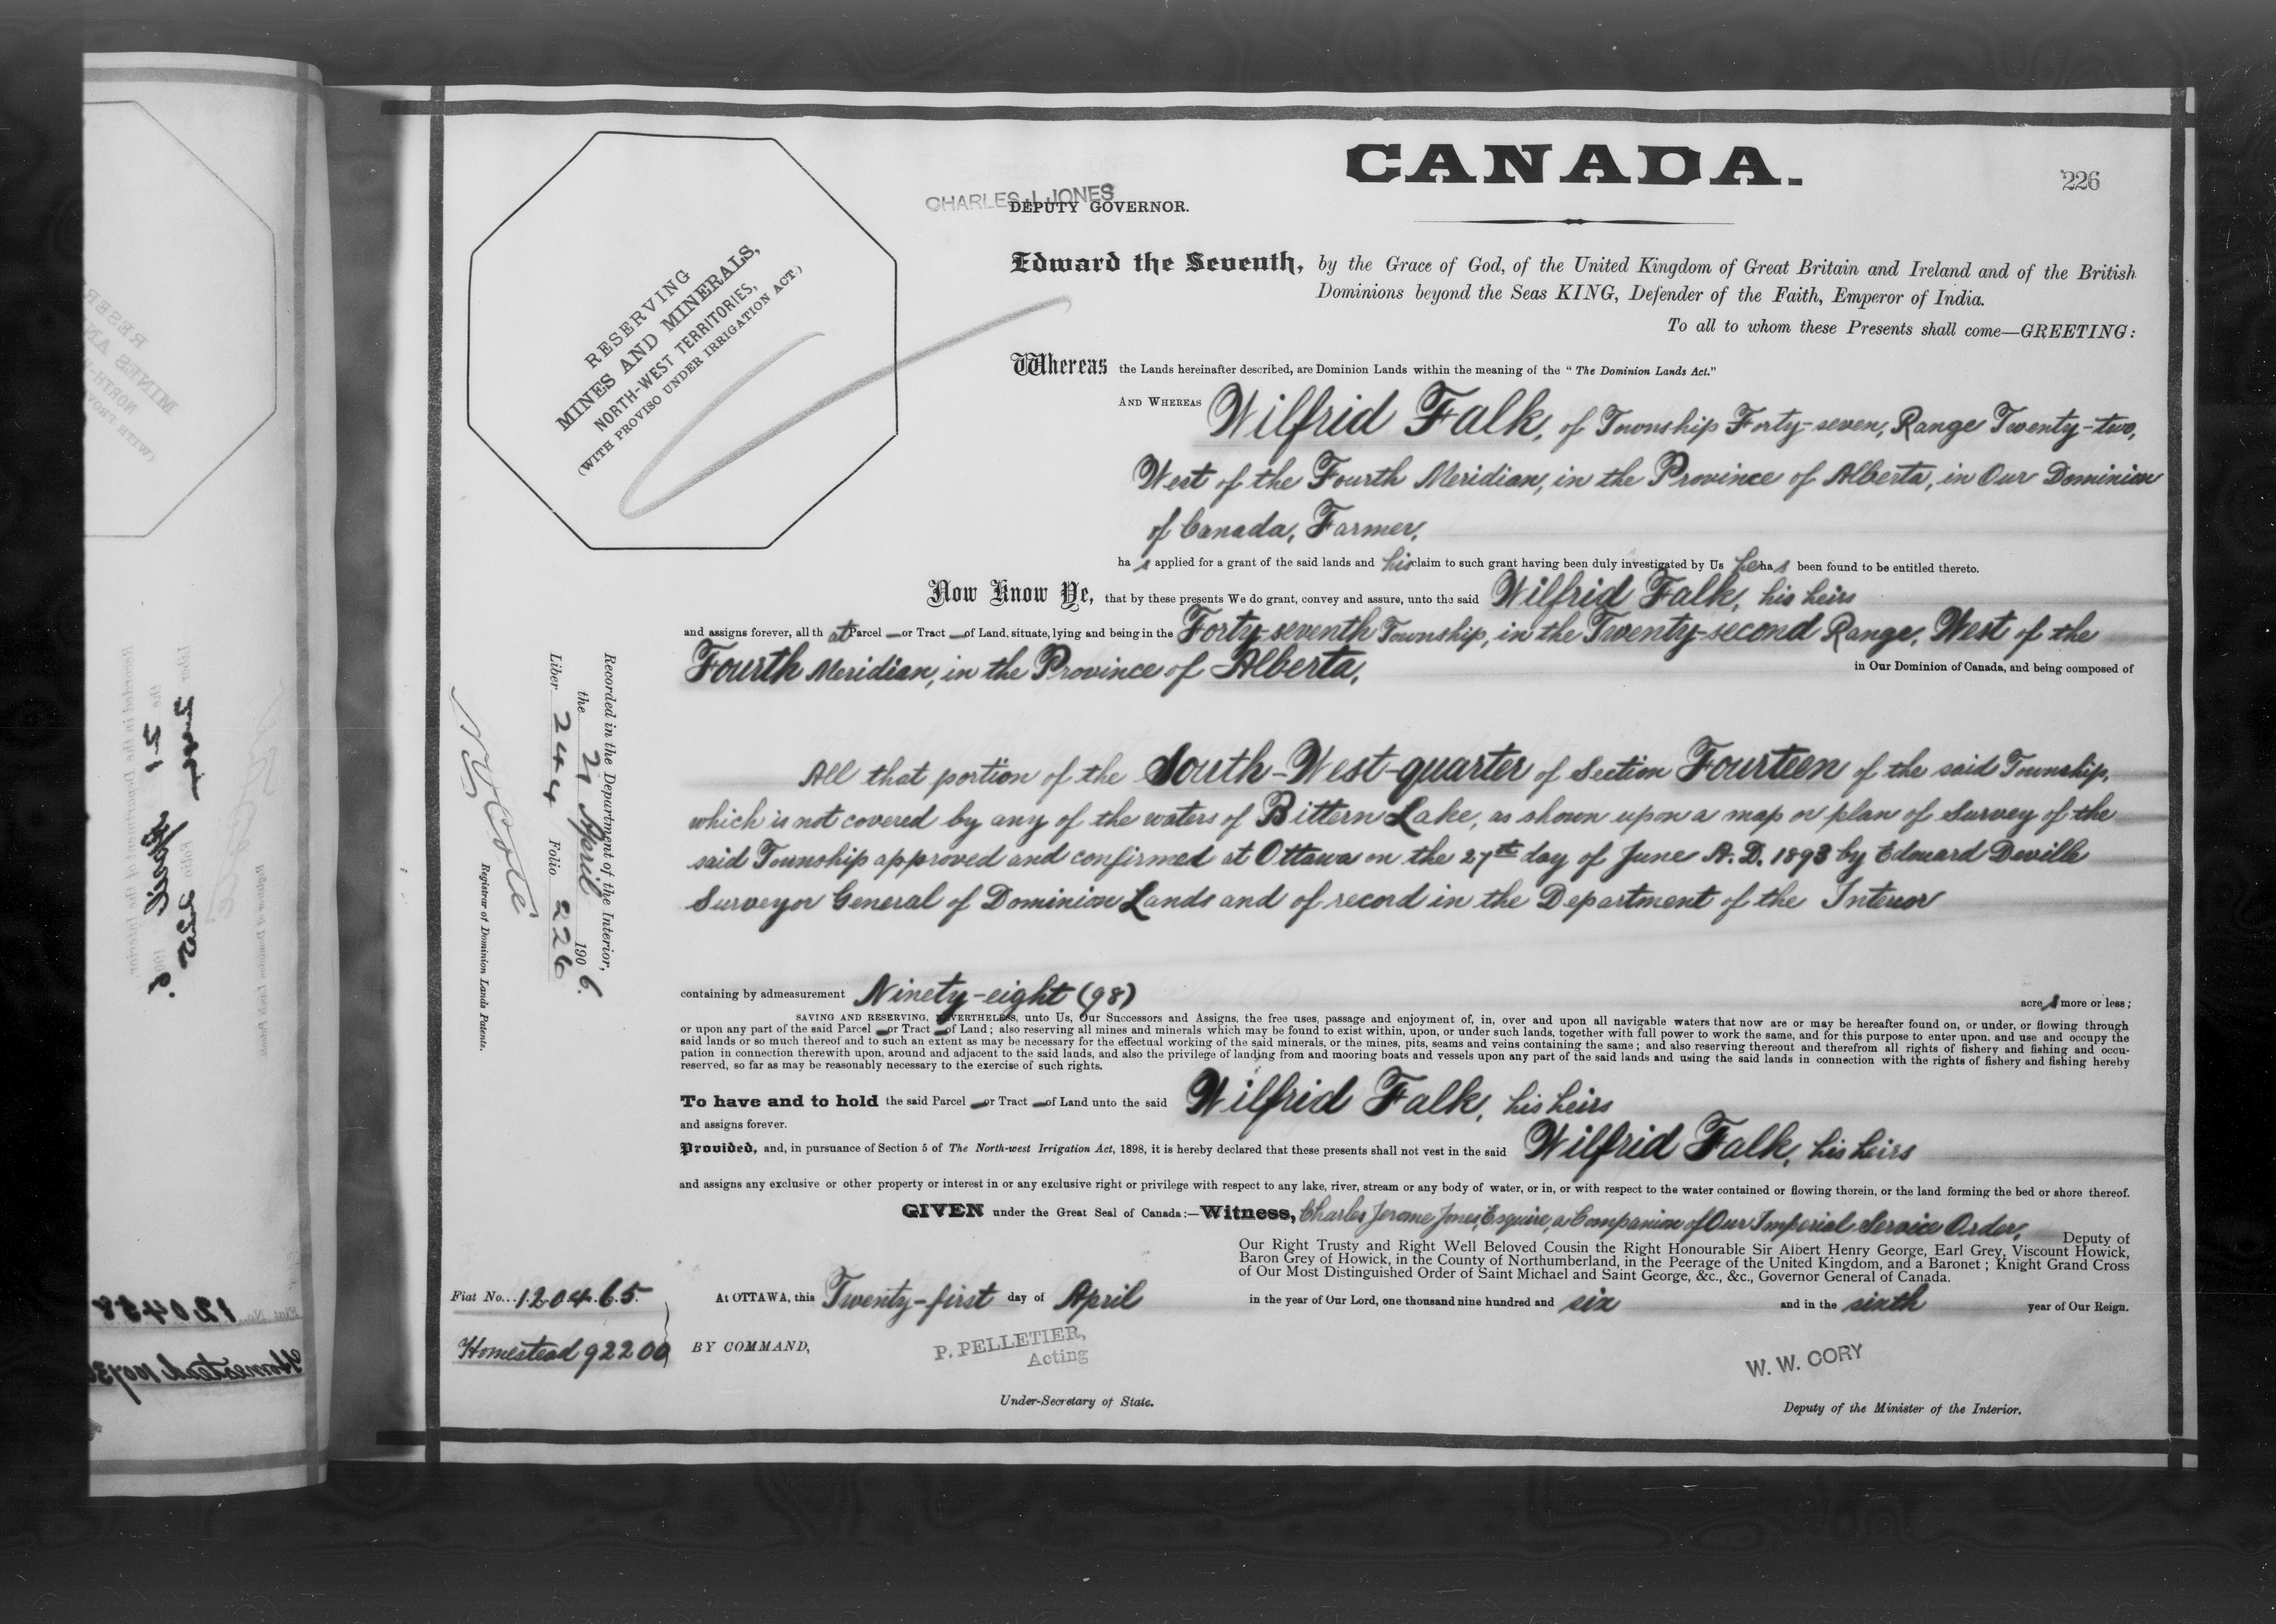 CANADA.
226
CHARLES J. JONES
DEPUTY GOVERNOR.
RESERVING
MINES AND MINERALS,
NORTH-WEST TERRITORIES,
(WITH PROVISO UNDER IRRIGATION ACT.)
Edward the Seventh, by the Grace of God, of the United Kingdom of Great Britain and Ireland and of the British
Dominions beyond the Seas KING, Defender of the Faith, Emperor of India.
To all to whom these Presents shall come—GREETING:
Whereas the Lands hereinafter described, are Dominion Lands within the meaning of the "The Dominion Lands Act."
AND WHEREAS Wilfrid Falk, of Township Forty-seven, Range Twenty-two,
West of the Fourth Meridian, in the Province of Alberta, in Our Dominion
of Canada, Farmer,
ha s applied for a grant of the said lands and his claim to such grant having been duly investigated by Us he has been found to be entitled thereto.
Now Know Ye, that by these presents We do grant, convey and assure, unto the said Wilfrid Falk, his heirs
and assigns forever, all th at Parcel — or Tract — of Land, situate, lying and being in the Forty-seventh Township, in the Twenty-second Range, West of the
Fourth Meridian, in the Province of Alberta, in Our Dominion of Canada, and being composed of
All that portion of the South-West-quarter of Section Fourteen of the said Township,
which is not covered by any of the waters of Bittern Lake, as shown upon a map or plan of Survey of the
said Township approved and confirmed at Ottawa on the 27th day of June A.D. 1893 by Edouard Deville
Surveyor General of Dominion Lands and of record in the Department of the Interior
containing by admeasurement Ninety-eight (98) acre s more or less;
SAVING AND RESERVING, NEVERTHELESS, unto Us, Our Successors and Assigns, the free uses, passage and enjoyment of, in, over and upon all navigable waters that now are or may be hereafter found on, or under, or flowing through
or upon any part of the said Parcel — or Tract — of Land; also reserving all mines and minerals which may be found to exist within, upon, or under such lands, together with full power to work the same, and for this purpose to enter upon, and use and occupy the
said lands or so much thereof and to such an extent as may be necessary for the effectual working of the said minerals, or the mines, pits, seams and veins containing the same; and also reserving thereout and therefrom all rights of fishery and fishing and occu-
pation in connection therewith upon, around and adjacent to the said lands, and also the privilege of landing from and mooring boats and vessels upon any part of the said lands and using the said lands in connection with the rights of fishery and fishing hereby
reserved, so far as may be reasonably necessary to the exercise of such rights.
To have and to hold the said Parcel — or Tract — of Land unto the said Wilfrid Falk, his heirs
and assigns forever.
Provided, and, in pursuance of Section 5 of The North-west Irrigation Act, 1898, it is hereby declared that these presents shall not vest in the said Wilfrid Falk, his heirs
and assigns any exclusive or other property or interest in or any exclusive right or privilege with respect to any lake, river, stream or any body of water, or in, or with respect to the water contained or flowing therein, or the land forming the bed or shore thereof.
GIVEN under the Great Seal of Canada:—Witness, Charles Jerome Jones, Esquire, a Companion of Our Imperial Service Order, Deputy of
Our Right Trusty and Right Well Beloved Cousin the Right Honourable Sir Albert Henry George, Earl Grey, Viscount Howick,
Baron Grey of Howick, in the County of Northumberland, in the Peerage of the United Kingdom, and a Baronet; Knight Grand Cross
of Our Most Distinguished Order of Saint Michael and Saint George, &c., &c., Governor General of Canada.
At OTTAWA, this Twenty-first day of April in the year of Our Lord, one thousand nine hundred and six and in the sixth year of Our Reign.
Fiat No. 120465.
Homestead 92200
BY COMMAND,
P. PELLETIER,
Acting
Under-Secretary of State.
W. W. CORY
Deputy of the Minister of the Interior.
Recorded in the Department of the Interior,
the 27 April 1906.
Liber 244 Folio 226
N O Coté
Registrar of Dominion Lands Patents.